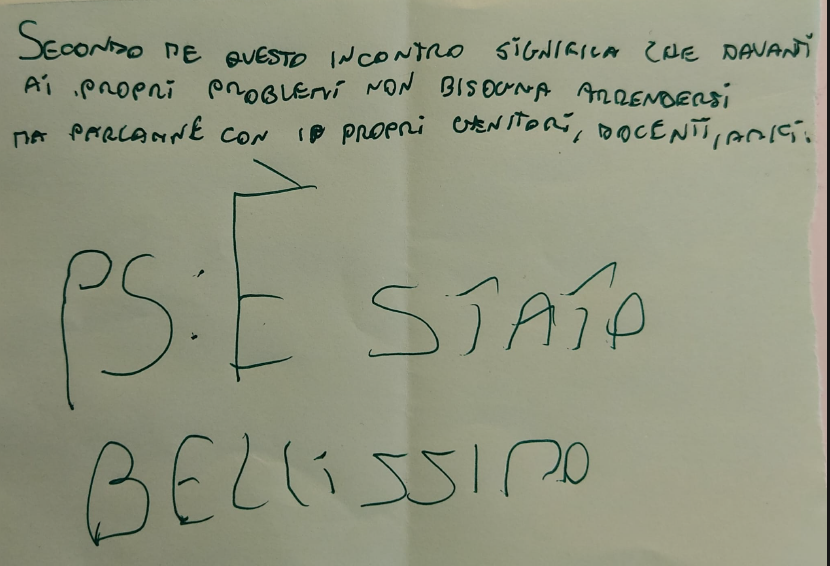 SECONDO ME QUESTO INCONTRO SIGNIFICA CHE DAVANTI
AI PROPRI PROBLEMI NON BISOGNA ARRENDERSI
MA PARLARNE CON I PROPRI GENITORI, DOCENTI, AMICI.
PS: È STATO
BELLISSIMO